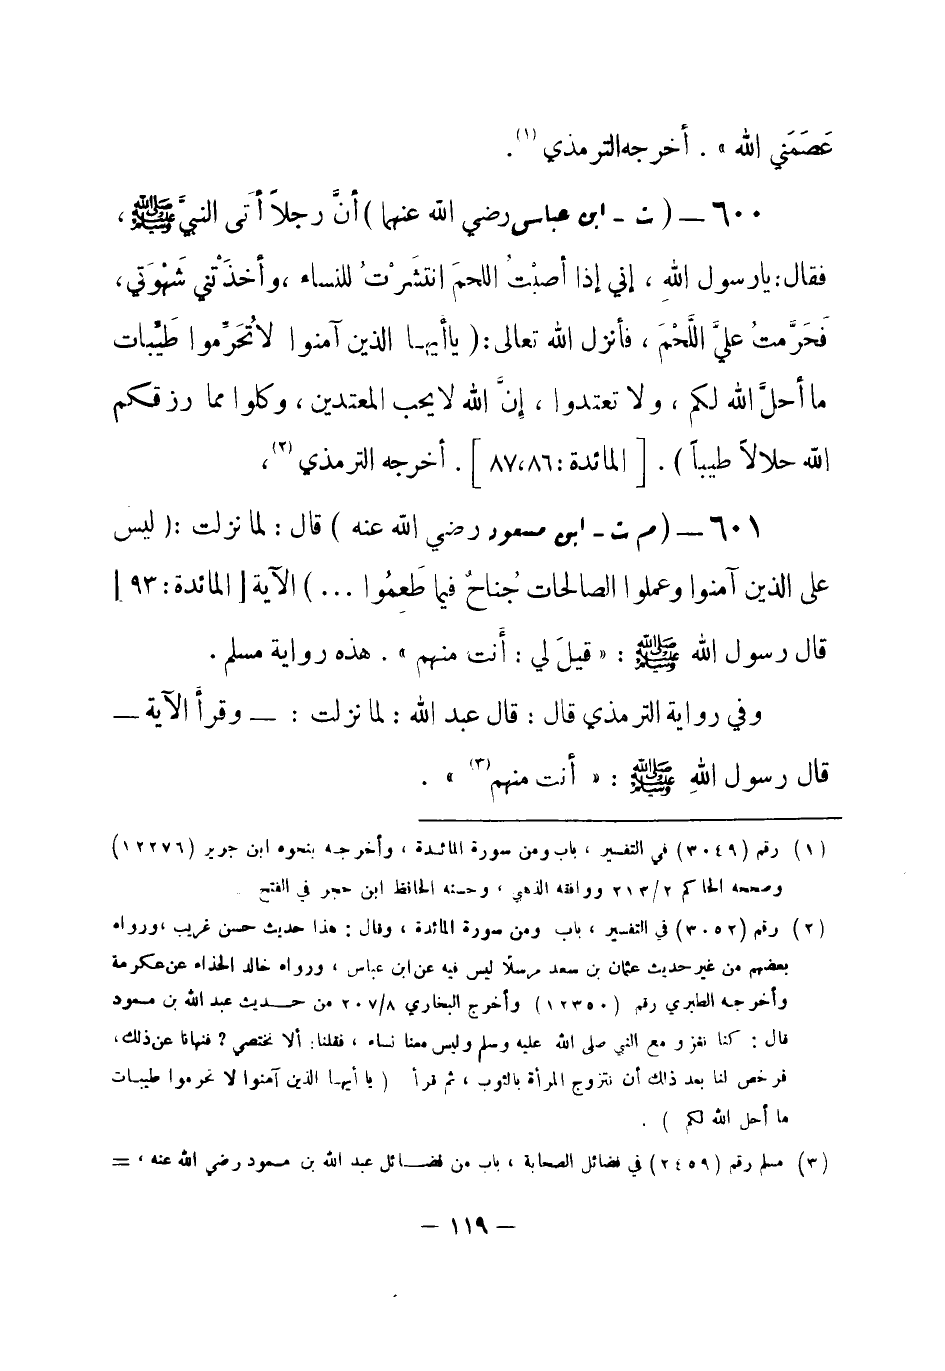 عَصَمَني الله » . أخرجه الترمذي (١).
٦٠٠ – ( ت - ابن عباس رضي الله عنهما ) أنَّ رجلاً أتى النبيَّ ﷺ ،
فقال : يارسول اللهِ ، إني إذا أصبْتُ اللحمَ انتشَرْتُ للنساء ، وأخذَتْني شَهْوَتي ،
فَحَرَّمتُ عليَّ اللَّحْمَ ، فأنزل الله تعالى : ( ياأيهـا الذين آمنوا لاتُحَرِّموا طَيِّبات
ما أحلَّ الله لكم ، ولا تعتدوا ، إنَّ الله لايحب المعتدين ، وكلوا مما رزقكم
الله حلالاً طيباً ) . [ المائدة : ٨٧،٨٦ ] . أخرجه الترمذي (٢)،
٦٠١ – ( م ت - ابن مسعود رضي الله عنه ) قال : لما نزلت : ( ليس
على الذين آمنوا وعملوا الصالحات جُناحٌ فيما طَعِمُوا ... ) الآية [ المائدة : ٩٣ ]
قال رسول الله ﷺ : « قيلَ لي : أَنت منهم » . هذه رواية مسلم .
وفي رواية الترمذي قال : قال عبد الله : لما نزلت : – وقرأَ الآية –
قال رسول اللهِ ﷺ : « أنت منهم (٣) » .
(١) رقم (٣٠٤٩) في التفسير ، باب ومن سورة المائدة ، وأخرجه بنحوه ابن جرير (١٢٢٧٦)
وصححه الحاكم ٢١٣/٢ ووافقه الذهبي ، وحسنه الحافظ ابن حجر في الفتح
(٢) رقم (٣٠٥٢) في التفسير ، باب ومن سورة المائدة ، وقال : هذا حديث حسن غريب ، ورواه
بعضهم من غير حديث عثمان بن سعد مرسلًا ليس فيه عن ابن عباس ، ورواه خالد الحذاء عن عكرمة
وأخرجه الطبري رقم (١٢٣٥٠) وأخرج البخاري ٢٠٧/٨ من حـديث عبد الله بن مسعود
قال : كنا نغزو مع النبي صلى الله عليه وسلم وليس معنا نساء ، فقلنا: ألا نختصي ؟ فنهانا عن ذلك ،
فرخص لنا بعد ذلك أن نتزوج المرأة بالثوب ، ثم قرأ ( يا أيهـا الذين آمنوا لا تحرموا طيبات
ما أحل الله لكم ) .
(٣) مسلم رقم (٢٤٥٩) في فضائل الصحابة ، باب من فضـائل عبد الله بن مسعود رضي الله عنه ، =
– ١١٩ –